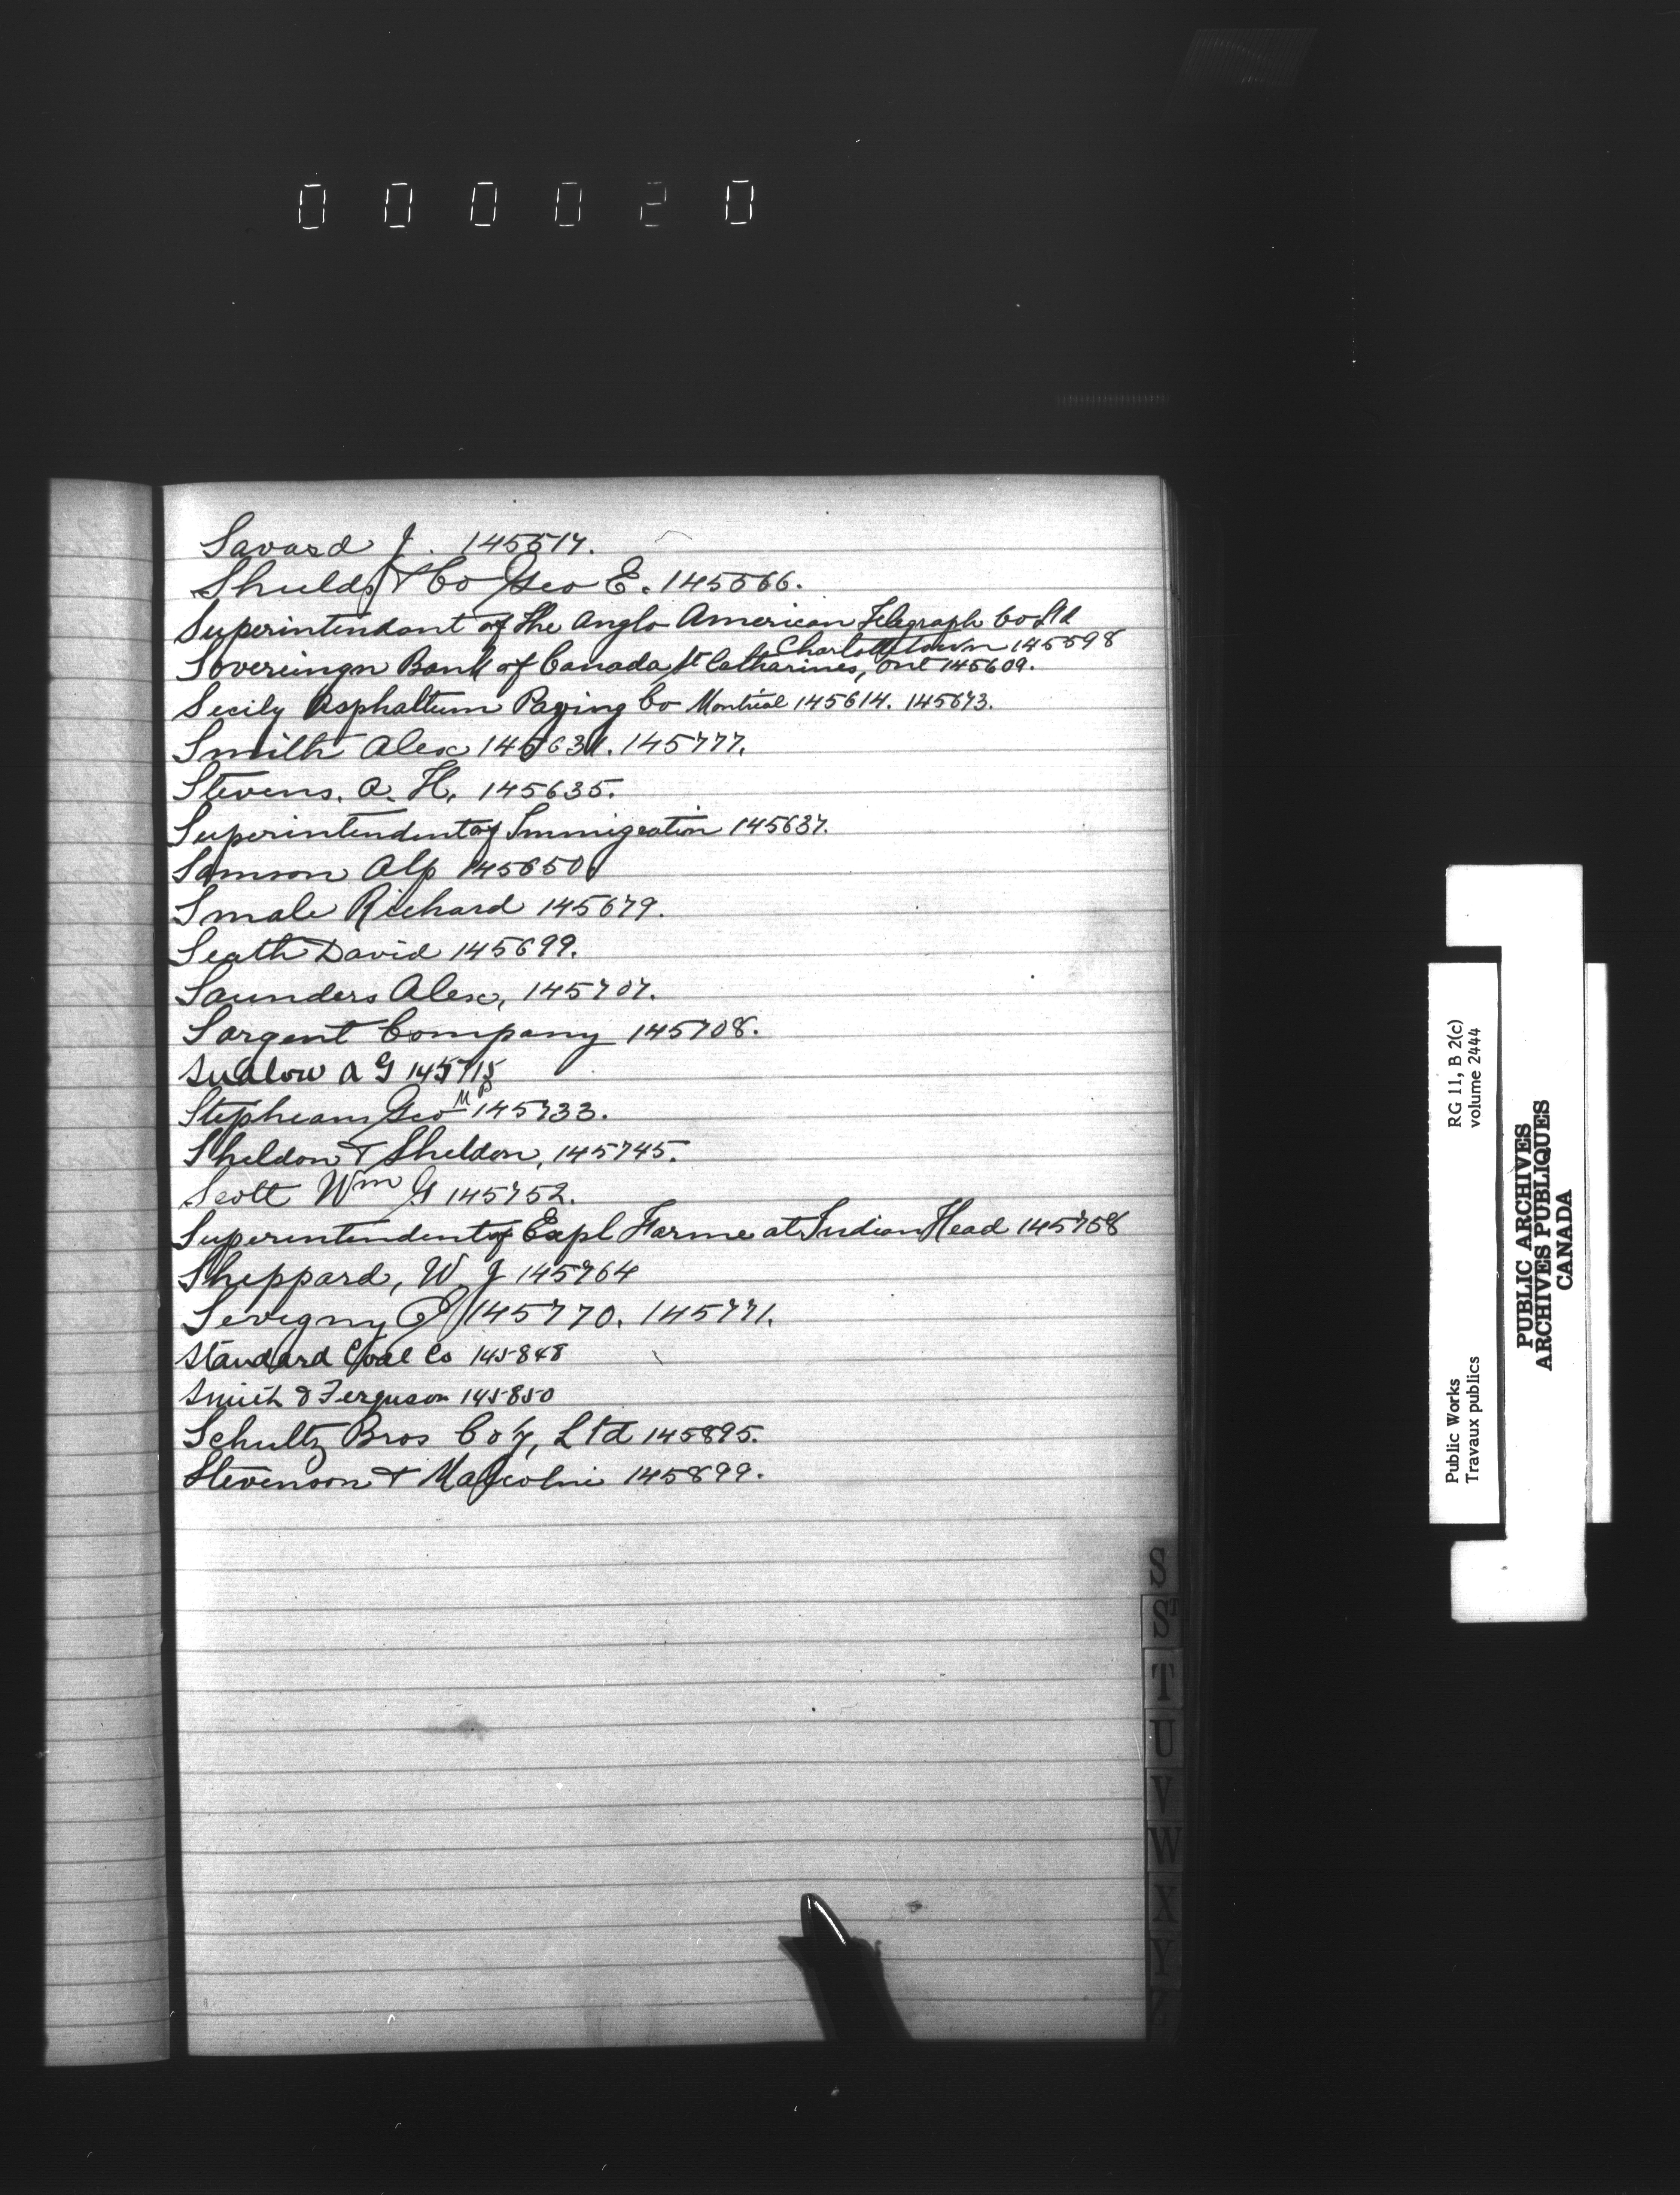 000020
Savard J. 145517.
Shulds & Co Geo E. 145566.
Superintendant of the Anglo American Telegraph Co Ltd
Charlottetown 145598
Sovereingn Bank of Canada St Catharines, Ont 145609.
Secily Asphaltum Paving Co Montreal 145614. 145673.
Smith Alex 145631. 145777.
Stevens. A. H. 145635.
Superintendent of Immigration 145637.
Samson Alp 145650
Smale Richard 145679.
Seath David 145699.
Saunders Alex, 145707.
Sargent Company 145708.
A G 145715
Stephens Geo M 145733.
Sheldon & Sheldon, 145745.
Scott Wm G 145752.
Superintendent of Expl Farme at Indian Head 145758
Sheppard, W J 145764
Sevigny O 145770. 145771.
Standard Coal Co 145848
Smith & Ferguson 145850
Schultz Bros Coy, Ltd 145895.
Stevenson & Malcolm 145899.
S
ST
T
U
V
W
X
Y
Z
Public Works
Travaux publics
RG 11, B 2(c)
volume 2444
PUBLIC ARCHIVES
ARCHIVES PUBLIQUES
CANADA